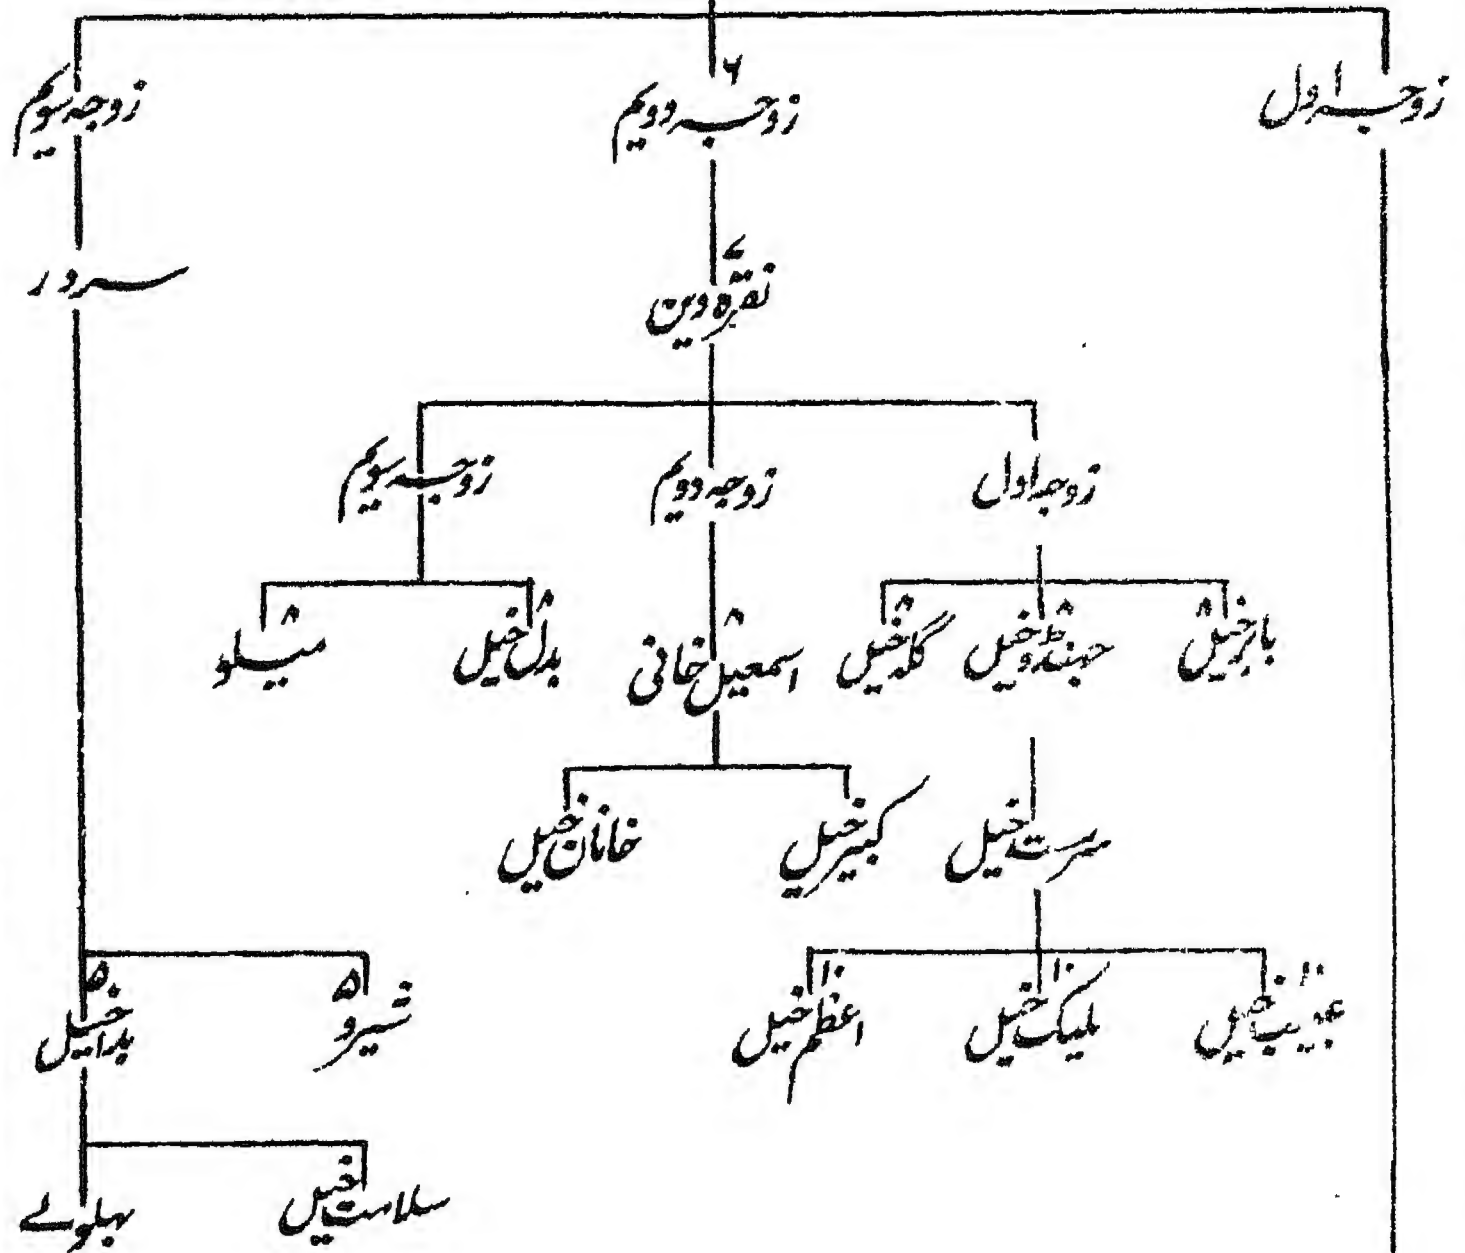 زوجہ اول زوجہ دویم ۶ زوجہ سویم
نقرہ دین ۷ سرور
زوجہ اول زوجہ دویم زوجہ سویم
بابر خیل ۸ جہنڈو خیل ۸ گلہ خیل ۸ اسمعیل خانی ۸ بدل خیل ۸ میشلو
سرست خیل کبیر خیل خانان خیل
عجیب خیل ۱۰ ملیک خیل ۱۰ اعظم خیل ۱۰ شیرو ۵ خیل ۵
سلامت خیل بہلولے